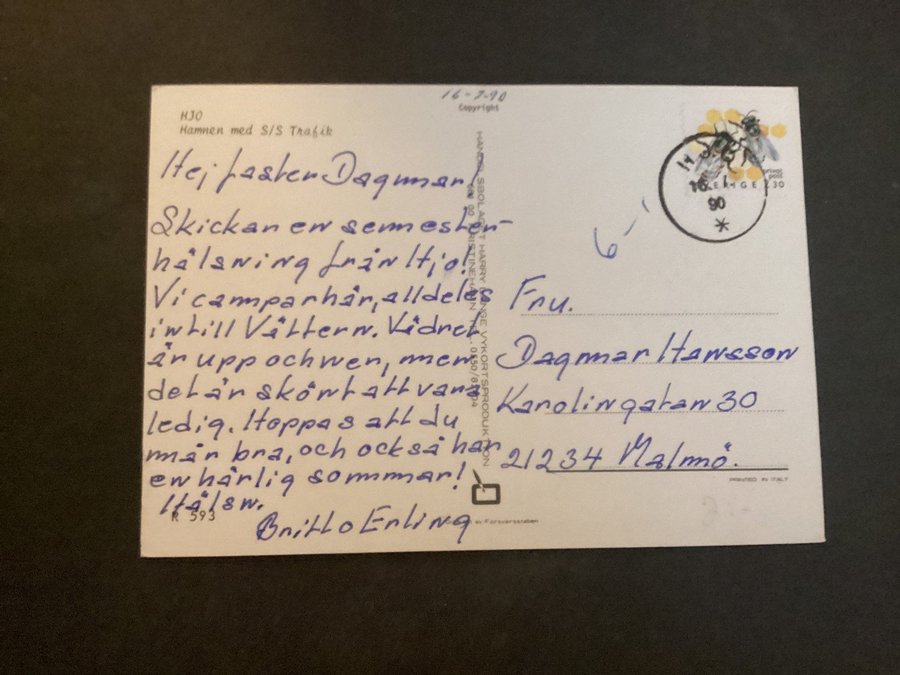 16-7-90
Copyright
HJO
Hamnen med S/S Trafik
Hej faster Dagmar!
Skickar en semester-
hälsning från Hjo!
Vi campar här, alldeles
intill Vättern. Vädret
är upp och ner, men
det är skönt att vara
ledig. Hoppas att du
mår bra, och också har
en härlig sommmar!
Hälsn.
Britt o Erling
R 593
HJO
16
90
SVERIGE 2.30
6-1
Fru.
Dagmar Hansson
Karolingatan 30
21234 Malmö.
PRINTED IN ITALY
av Försvarsstaben